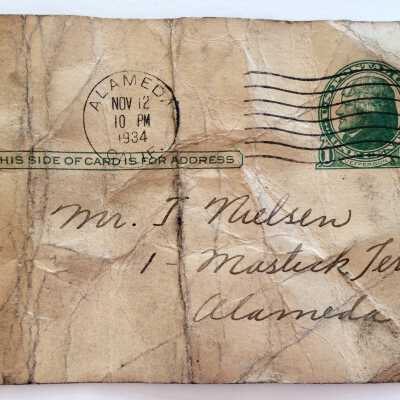 ALAMEDA
NOV 12
10 PM
1934
HIS SIDE OF CARD IS FOR ADDRESS
JEFFERSON
Mr. T Nielsen
1 - Mastick Ter
Alameda